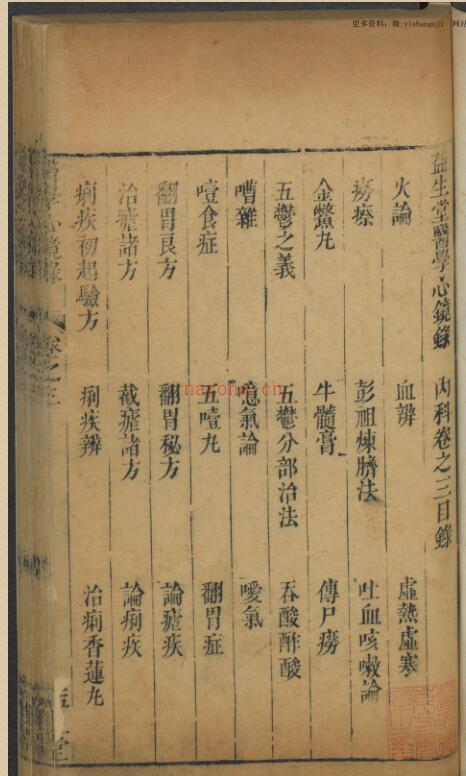 更多资料：微:yishanguji 网站
益生堂醫學心鏡錄 內科卷之三目錄
火論 血辨 虛熱虛寒
癆瘵 彭祖煉臍法 吐血咳嗽論
金鱉丸 牛髓膏 傳尸癆
五鬱之義 五鬱分部治法 吞酸酢酸
嘈雜 噫氣論 噯氣
噎食症 五噎丸 翻胃症
翻胃良方 翻胃秘方 論瘧疾
治瘧諸方 截瘧諸方 論痢疾
痢疾初起驗方 痢疾辨 治痢香蓮丸
醫學心鏡錄 卷之三 堂